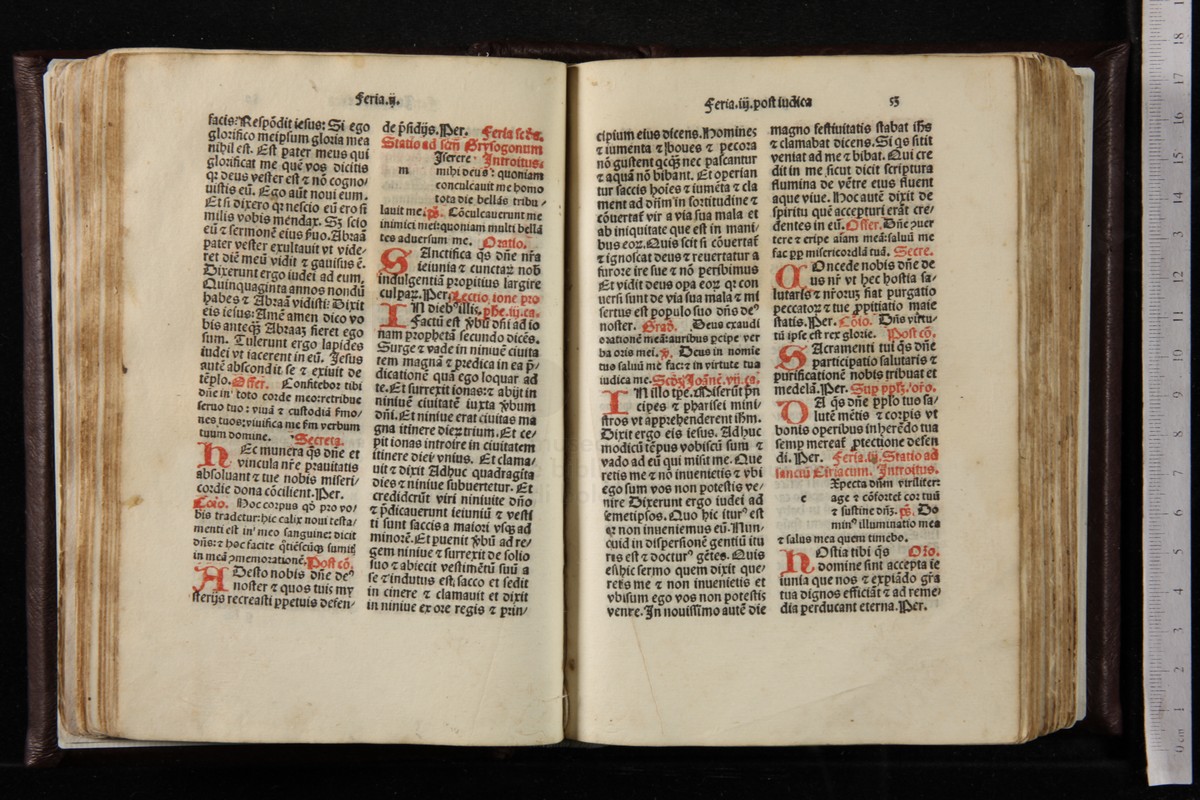 Feria.ij.
facis? Respōdit iesus: Si ego
glorifico meipsum gloria mea
nihil est. Est pater meus qui
glorificat me quē vos dicitis
qr deus vester est ⁊ nō cogno/
uistis eū. Ego aūt noui eum.
Et si dixero qr nescio eū ero si
milis vobis mendax. Sꝫ scio
eū ⁊ sermonē eius ẜuo. Abraā
pater vester exultauit vt vide/
ret diē meū vidit ⁊ gauisus ē.
Dixerunt ergo iudei ad eum.
Quinquaginta annos nondū
habes ⁊ Abraā vidisti? Dixit
eis iesus: Amē amen dico vo
bis anteqꝫ Abraaꝫ fieret ego
sum. Tulerunt ergo lapides
iudei vt iacerent in eū. Jesus
autē abscondit se ⁊ exiuit de
tēplo. Offer. Confitebor tibi
dñe in toto corde meo: retribue
seruo tuo: viuā ⁊ custodiā ẜmo/
nes tuos: viuifica me ẜm verbum
tuum domine. Secreta.
HEc munera qs̄ dñe et
vincula nr̄e prauitatis
absoluant ⁊ tue nobis miseri/
cordie dona cōcilient. Per.
Cōio. Hoc corpus qđ pro vo/
bis tradetur: hic calix noui testa/
menti est in meo sanguine: dicit
dñs: ⁊ hoc facite qtiēscūqꝫ sumit̄
in meā ꝯmemorationē. Post cō.
ADesto nobis dñe de⁹
noster ⁊ quos tuis my
sterijs recreasti ꝑpetuis defen/
de p̄sidijs. Per. Feria sc̄da.
Statio ad scm̄ Grysogonum
Iserere Introitus.
m mihi deus: quoniam
conculcauit me homo
tota die bellās tribu/
lauit me. ps̄. Cōculcauerunt me
inimici mei: quoniam multi bellā
tes aduersum me. Oratio.
SAnctifica qs̄ dñe nr̄a
ieiunia ⁊ cunctaꝝ nob̄
indulgentiā propitius largire
culpaꝝ. Per. Lectio ione pro
IN dieb⁹ illis. phe. iij. ca.
Factū est v̄bū dñi ad io
nam prophetā secundo dicēs.
Surge ⁊ vade in niniuē ciuita
tem magnā ⁊ predica in ea p̄/
dicationē quā ego loquar ad
te. Et surrexit ionas: ⁊ abijt in
niniuē ciuitatē iuxta v̄bum
dñi. Et niniue erat ciuitas ma
gna itinere dieꝝ trium. Et ce/
pit ionas introire in ciuitatem
itinere diei vnius. Et clama/
uit ⁊ dixit Adhuc quadragita
dies ⁊ niniue subuertetur. Et
crediderūt viri niniuite dño
⁊ p̄dicauerunt ieiuniū ⁊ vesti
ti sunt saccis a maiori vsqꝫ ad
minorē. Et puenit v̄bū ad re/
gem niniue ⁊ surrexit de solio
suo ⁊ abiecit vestimētū suū a
se ⁊ indutus est sacco et sedit
in cinere ⁊ clamauit et dixit
in niniue ex ore regis ⁊ prin/
Feria.iij.post iudica 53
cipium eius dicens. Homines
⁊ iumenta ⁊ boues ⁊ pecora
nō gustent qcqꝫ nec pascantur
⁊ aquā nō bibant. Et operian
tur saccis hoīes ⁊ iumēta ⁊ cla
ment ad dñm in fortitudine ⁊
cōuertat̄ vir a via sua mala et
ab iniquitate que est in mani/
bus eoꝝ. Quis scit si cōuertat̄
⁊ ignoscat deus ⁊ reuertatur a
furore ire sue ⁊ nō peribimus
Et vidit deus opa eoꝝ qr con
uersi sunt de via sua mala ⁊ mi
sertus est populo suo dñs de⁹
noster. Grad. Deus exaudi
orationē meā: auribus ꝑcipe ver
ba oris mei. v̄. Deus in nomie
tuo saluū me fac: ⁊ in virtute tua
iudica me. Scd̄ꝫ Joānē. vij. ca.
IN illo tp̄e. Miserūt pn̄
cipes ⁊ pharisei mini/
stros vt apprehenderent ihm̄.
Dixit ergo eis iesus. Adhuc
modicū tēpus vobiscū sum ⁊
vado ad eū qui misit me. Que
retis me ⁊ nō inuenietis ⁊ vbi
ego sum vos non potestis ve/
nire Dixerunt ergo iudei ad
semetipsos. Quo hic itur⁹ est
qr non inueniemus eū. Nun/
quid in dispersionē gentiū itu
rus est ⁊ doctur⁹ gētes. Quis
est hic sermo quem dixit que/
retis me ⁊ non inuenietis et
vbi sum ego vos non potestis
venire. In nouissimo autē die
magno festiuitatis stabat ihs̄
⁊ clamabat dicens. Si qs sitit
veniat ad me ⁊ bibat. Qui cre
dit in me sicut dicit scriptura
flumina de vētre eius fluent
aque viue. Hoc autē dixit de
spiritu quē accepturi erāt cre/
dentes in eū. Offer. Dñe ꝯuer
tere ⁊ eripe aīam meā: saluū me
fac ꝓp misericordiā tuā. Secre.
COncede nobis dñe de
us nr̄ vt hec hostia sa/
lutaris ⁊ nr̄oruꝫ fiat purgatio
peccatoꝝ ⁊ tue ꝓpitiatio maie
statis. Per. Cōio. Dñs virtu/
tū ipse est rex glorie. Post cō.
SAcramenti tui qs̄ dñe
participatio salutaris ⁊
purificationē nobis tribuat et
medelā. Per. Sup pplꝫ. oro.
DA qs̄ dñe pplo tuo sa/
lutē mētis ⁊ corpis vt
bonis operibus inherēdo tua
semp mereat̄ ꝓtectione defen
di. Per. Feria.iij. Statio ad
sanctū Ciriacum. Introitus.
Xpecta dñm viriliter:
e age ⁊ cōfortet̄ cor tuū
⁊ sustine dñꝫ. ps̄. Do
min⁹ illuminatio mea
⁊ salus mea quem timebo.
HOstia tibi qs̄ Oro.
domine sint accepta ie
iunia que nos ⁊ expiādo gr̄a
tua dignos efficiāt ⁊ ad reme/
dia perducant eterna. Per.